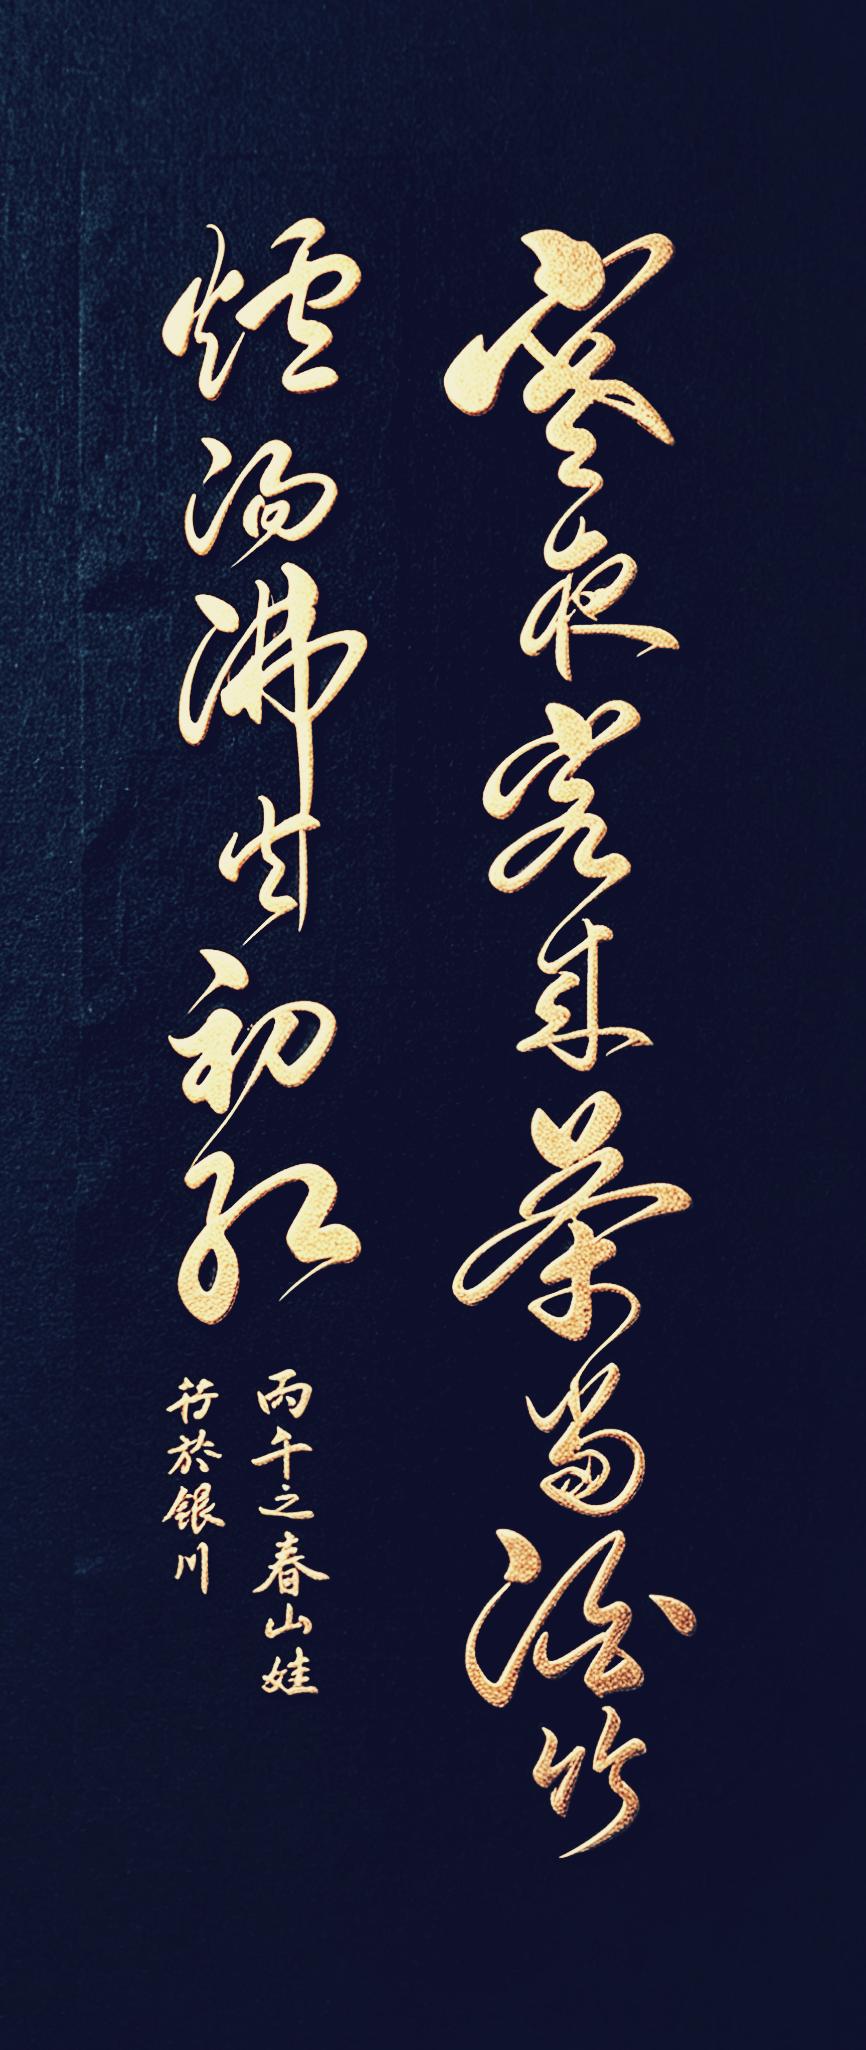 寒夜客来茶当酒竹
炉汤沸火初红
丙午之春山娃
行於银川